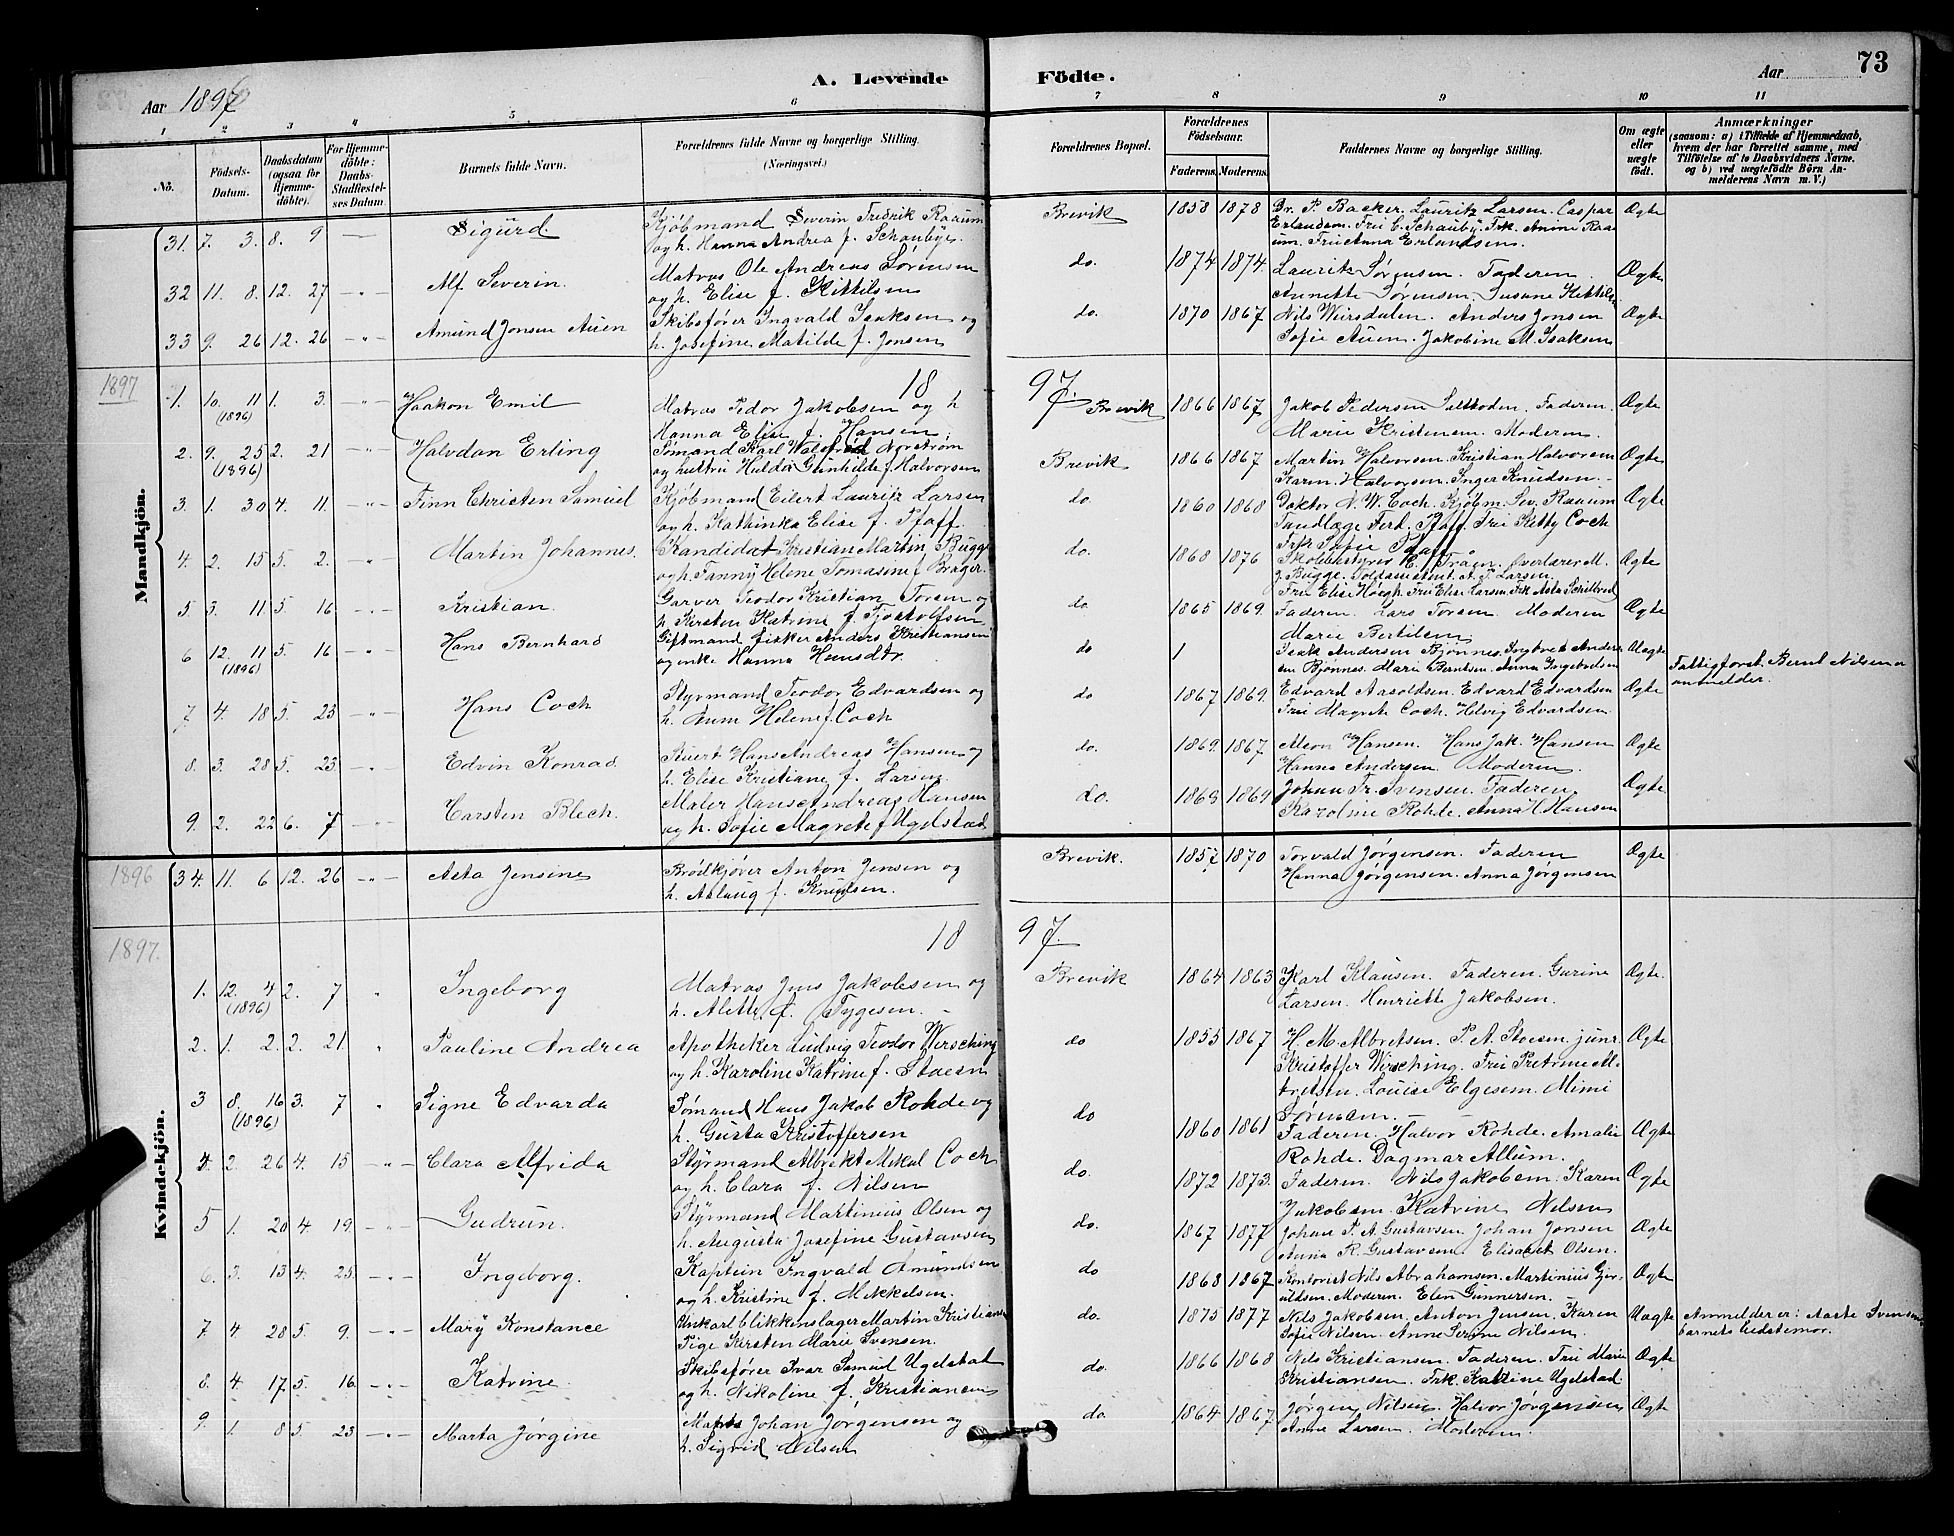 A. Levende Födte.
73
Aar 1897
Aar
1 2 3 4 5 6 7 8 9 10 11
No.
Födsels-Datum.
Daabsdatum (ogsaa for Hjemmedöbte).
For Hjemmedöbte: Daabs-Stadfæstelses Datum
Barnets fulde Navn.
Forældrenes fulde Navne og borgerlige Stilling. (Næringsvei.)
Forældrenes Bopæl.
Forældrenes Födselsaar.
Faderens. Moderens.
Faddernes Navne og borgerlige Stilling.
Om ægte eller uægte födt.
Anmærkninger
(saasom: a) i Tilfælde af Hjemmedaab, hvem der har forrettet samme, med Tilföielse af to Daabsvidners Navne, og b) ved uægtefödte Börn Anmelderens Navn m. V.)
Mandkjön.
31. 7. 3. 8. 9 Sigurd. Kjøbmand Severin Fredrik Raaum Brevik 1858 1878 Dr. P. Backer. Lauritz Larsen. Caspar Ægte
og h. Hanna Andrea f. Schaubye. Erlandsen. Fru C. Schauby. Frk. Anine Raaum. Fru Anna Erlandsen.
32 11. 8. 12. 27 Alf Severin. Matros Ole Andreas Sørensen do. 1874 1874. Lauritz Sørensen. Faderen. Ægte
og h. Elise f. Kittilsen Annette Sørensen. Susane Kittilsn
33 9. 26 12. 26 Amund Jonsen Auen Skibsfører Ingvald Isaksen og do. 1870 1867 Nils Weirsdalen. Anders Jonsen Ægte
h. Josefine Matilde f. Jonsen Sofie Auen. Jakobine M. Isaksen
1897 1897.
1. 10. 11 (1896) 1. 3. Haakon Emil Matros Pedor Jakobsen og h Brevik 1866 1867 Jakob Pedersen Saltboden. Faderen. Ægte
Hanna Elise f. Hansen. Marie Kristensen. Moderen.
2. 9. 25 (1896) 2. 21 Halvdan Erling Sømand Karl Walfred Norstrøm Brevik 1866 1867 Martin Halvorsen. Kristian Halvorsen Ægte
og hustru Hulda Gunhilde f. Halvorsen Karen Halvorsen. Inger Knudsen.
3. 1. 30 4. 11. Finn Christen Samuel Kjøbmand Eilert Lauritz Larsen do 1860 1868 Doktor N. W. Coch. Kjøbm. Sev. Raaum Ægte
og h. Kathinka Elise f. Pfaff. Tandlæge Ferd. Pfaff. Fru Ketty Coch
Frk Sofie Pfaff
4. 2. 15 5. 2. Martin Johannes. Kandidat Kristian Martin Bugge do. 1868 1876 Skolebestyrer C. Traen. Overlærer M. Ægte
og h. Fanny Helene Tomasine f. Brager. J. Bugge. Toldassistent A. T. Larsen.
Fru Elise Høegh. Fru Elise Larsen. Frk Asta Schilbred
5. 3. 11 5. 16 Kristian. Garver Teodor Kristian Torsen og do. 1865 1869. Faderen. Lars Torsen. Moderen Ægte
h. Kirsten Katrine f. Tjostolfsen Marie Bertilsen
6 12. 11 (1896) 5. 16 Hans Bernhard Giftmand fisker Anders Kristiansen do Isak Andersen Bjønnes. Ingbret Andersen Bjønnes. Marie Berntsen. Anna Ingebretsen Uægte Fattigforst. Bernt Nilsen
og enke Hanna Hansdtr. anmelder.
7 4. 18 5. 23 Hans Coch Styrmand Teodor Edvardsen og do 1867 1869. Edvard Aasoldsen. Edvard Edvardsen Ægte
h. Anne Helene f. Coch Fru Magrete Coch. Helvig Edvardsen
8. 3. 28 5. 23. Edvin Konrad Stuert Hans Andreas Hansen og do. 1869. 1867. Aleon Hansen. Hans Jak. Hansen Ægte
h. Elise Kristiane f. Larsen. Hanna Andersen. Moderen.
9. 2. 22 6. 7 Carsten Blech. Maler Hans Andreas Hansen do. 1863 1864 Johan Fr. Svensen. Faderen. Ægte
og h. Sofie Magrete f Ugelstad Karoline Rohde. Anna H. Hansen
Kvindekjön.
1896 34. 11. 6 12. 26 Asta Jensine Brødkjører Anton Jensen og Brevik. 1852 1870 Torvald Jørgensen. Faderen Ægte
h. Aslaug f. Knudsen. Hanna Jørgensen. Anna Jørgensen
1897. 1897.
1. 12. 4 (1896) 2. 7 Ingeborg Matros Jens Jakobsen og Brevik 1864 1863 Karl Klausen. Faderen. Gurine Ægte.
h. Alette f. Tygesen. Larsen. Henriette Jakobsen.
2. 1. 2. 2. 21 Pauline Andrea Apotheker Ludvig Teodor Wirsching do 1855 1867 H. M. Albretsen. P. A. Stoesen junr. Ægte
og h. Karoline Katrine f. Stoesen Kristoffer Wirsching. Fru Petrine Albretsen. Louise Elgesem. Mimi Sørensen.
3 8. 16 (1896) 3. 7 Signe Edvarda Sømand Hans Jakob Rohde og do 1860 1861 Faderen. Halvor Rohde. Amalie Ægte
h. Gusta Kristoffersen Rohde. Dagmar Allum.
4. 2. 26 4. 15 Clara Alfrida Styrmand Albrekt Mikal Coch do. 1872 1873. Faderen. Nils Jakobsen. Karen Ægte
og h. Clara f. Nilsen Jakobsen. Katrine Nilsen
5 1. 20 4. 19. Gudrun. Styrmand Martinius Olsen og do. 1867 1877 Johan P. A. Gustavsen. Johan Jonsen Ægte
h. Augusta Josefine Gustavsen Anna R. Gustavsen. Elisabet Olsen.
6. 3. 13 4. 25. Ingeborg. Kaptein Ingvald Amundsen do 1868 1867 Kontorist Nils Abrahamsen. Martinius Gjeruldsen. Moderen. Elen Gunnersen. Ægte
og h. Kristine f. Mikkelsen.
7 4. 28 5. 9. Mary Konstance Unkarl blikkenslager Martin Kristiansen do. 1875 1877 Nils Jakobsen. Anton Jensen. Karen Uægte Anmelder er: Aaste Svensen
Pige Kirsten Marie Svensen. Sofie Nilsen. Anne Serine Nilsen. barnets bedstemor.
8. 4. 17. 5. 16. Katrine. Skibsfører Ivar Samuel Ugelstad do. 1866 1868 Nils Kristiansen. Faderen. Fru Marie Ægte
og h. Nikoline f. Kristiansen Kristiansen. Frk. Katrine Ugelstad
9. 1. 8 5. 23 Marta Jørgine Matros Johan Jørgensen og do 1864 1867 Jørgen Nilsen. Halvor Jørgensen Ægte
h. Sigrid Nilsen Anne Larsen. Moderen.